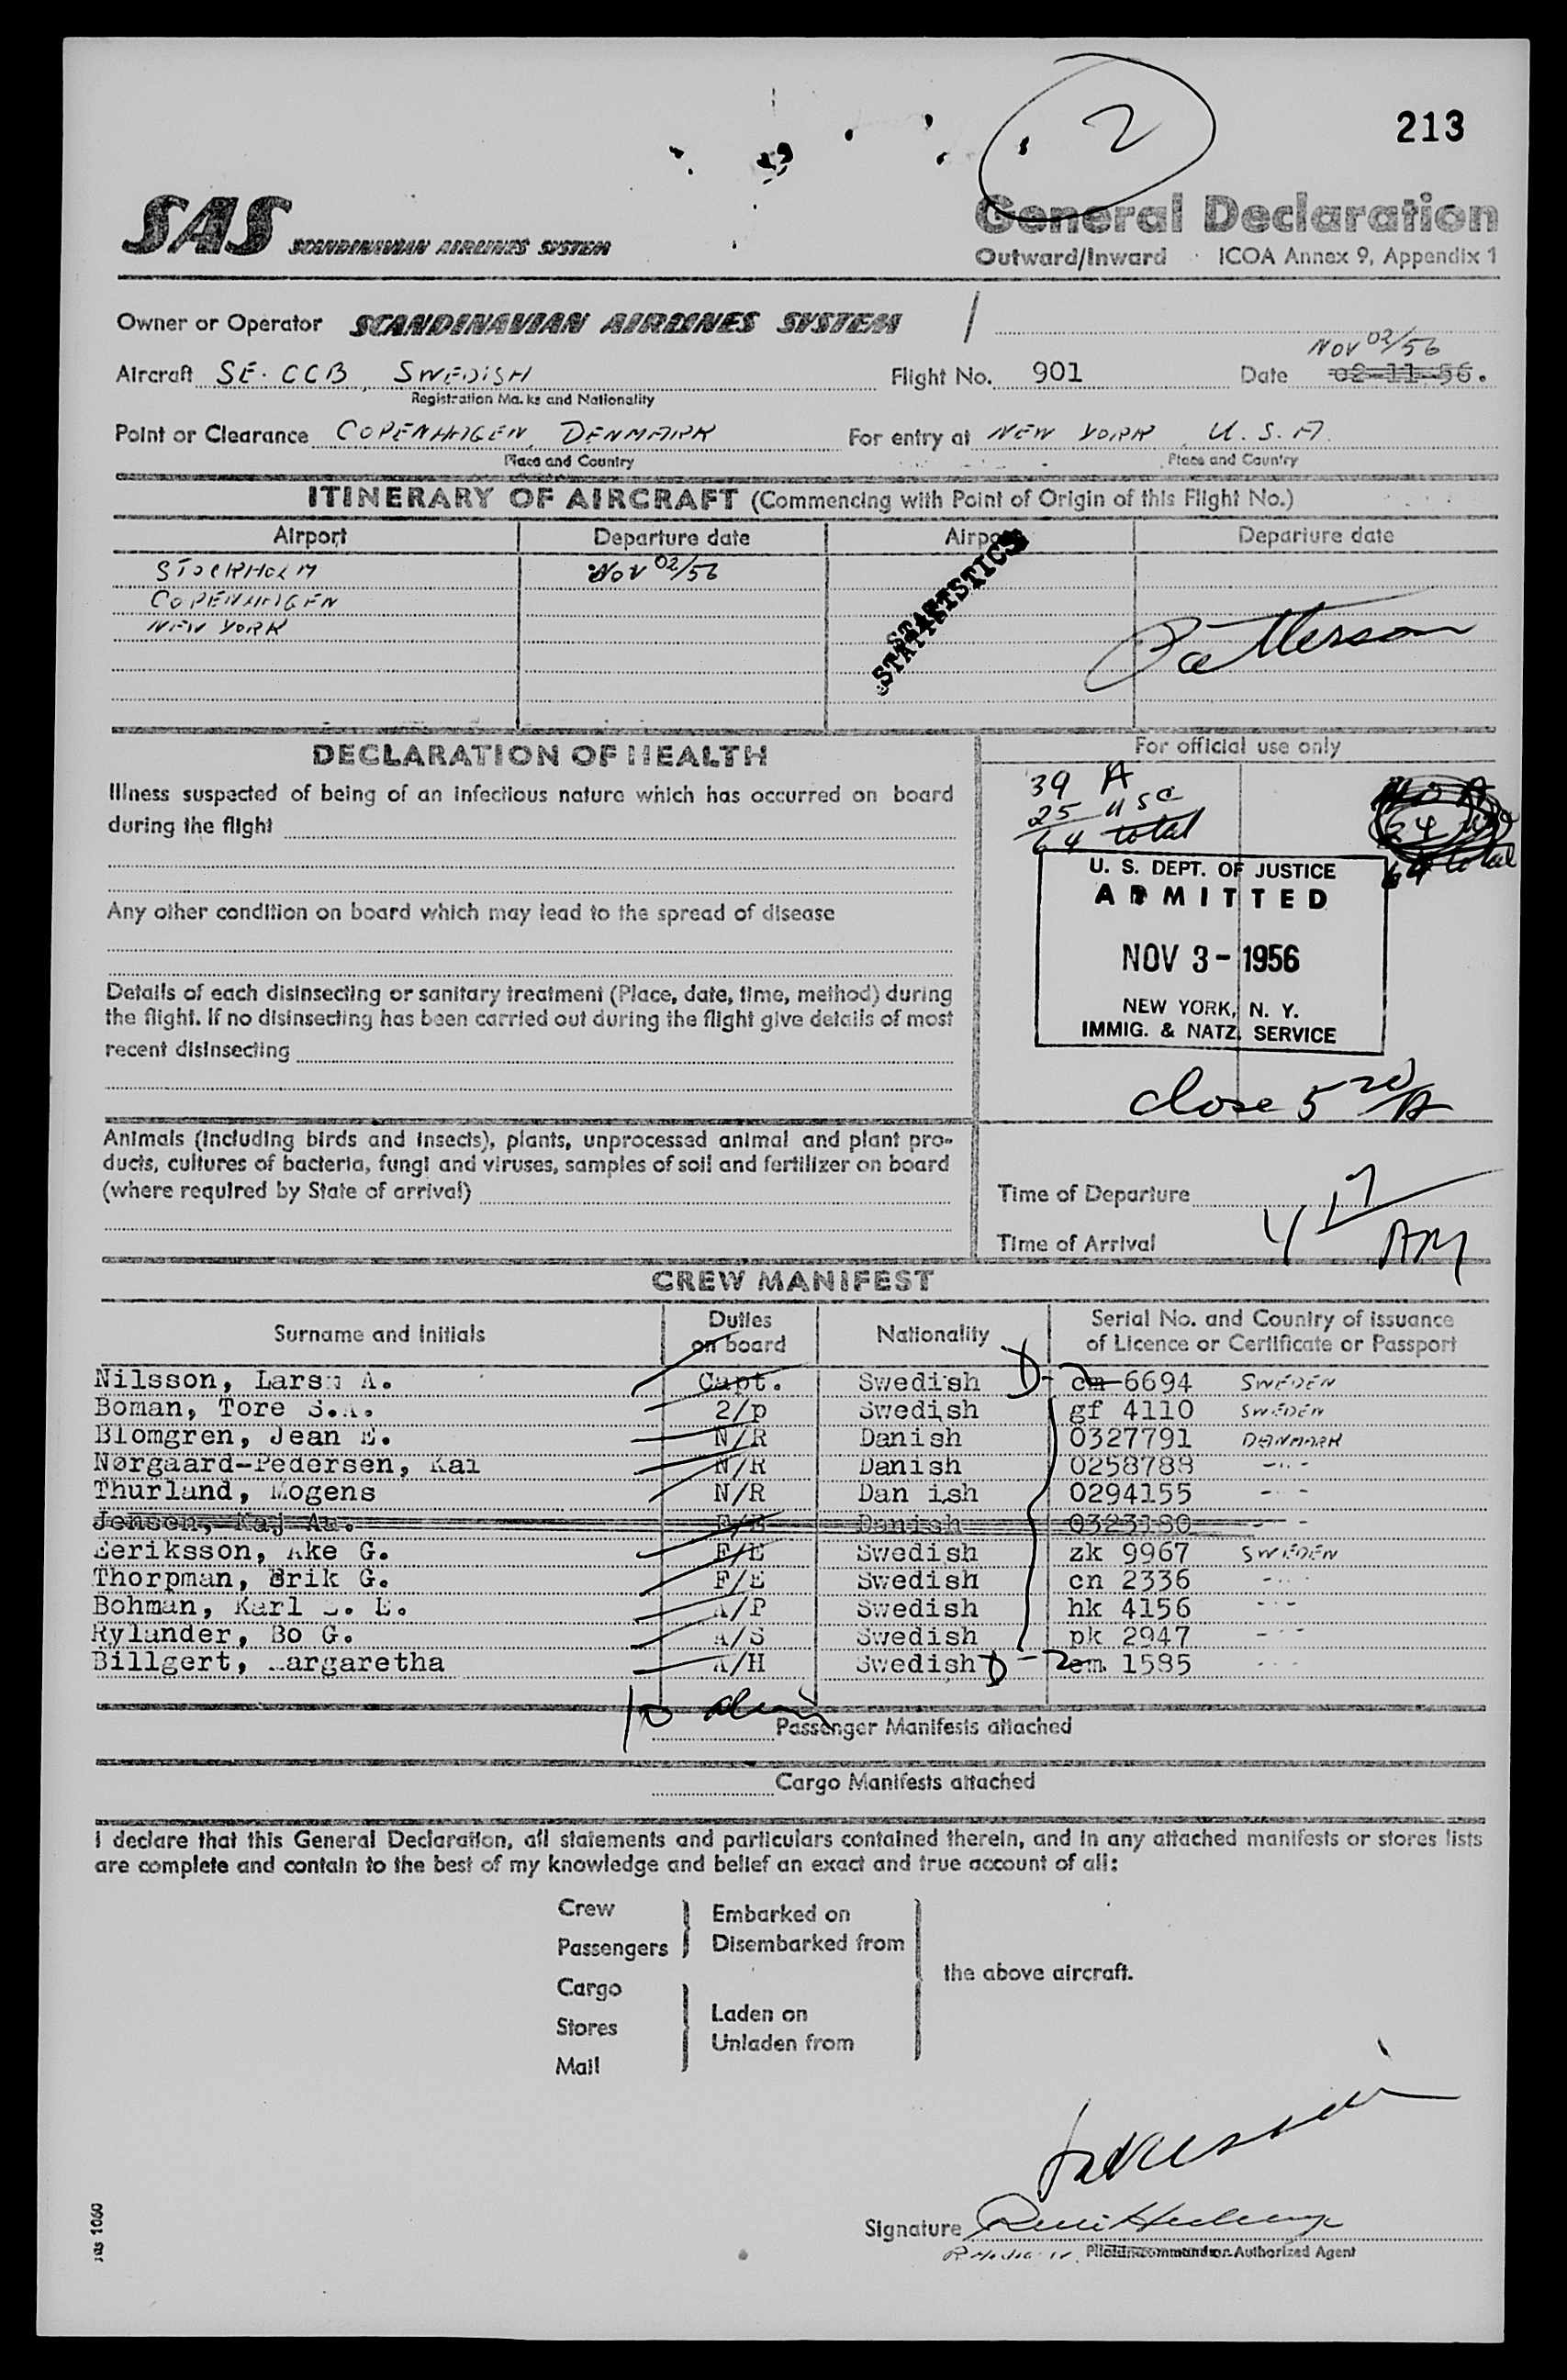 2
213
SAS SCANDINAVIAN AIRLINES SYSTEM
General Declaration
Outward/Inward ICOA Annex 9, Appendix 1
Owner or Operator SCANDINAVIAN AIRLINES SYSTEM /
NOV 02/56
Aircraft SE. CCB, SWEDISH Flight No. 901 Date 02-11-56.
Registration Marks and Nationality
Point or Clearance COPENHAGEN, DENMARK For entry at NEW YORK, U.S.A.
Place and Country Place and Country
ITINERARY OF AIRCRAFT (Commencing with Point of Origin of this Flight No.)
Airport Departure date Airport Departure date
STOCKHOLM NOV 02/56
COPENHAGEN
NEW YORK
STATISTICS
Patterson
DECLARATION OF HEALTH
For official use only
Illness suspected of being of an infectious nature which has occurred on board
during the flight
39 A
25 USC
64 total
64 total
Any other condition on board which may lead to the spread of disease
U. S. DEPT. OF JUSTICE
ADMITTED
NOV 3 - 1956
NEW YORK, N. Y.
IMMIG. & NATZ. SERVICE
Details of each disinsecting or sanitary treatment (Place, date, time, method) during
the flight. If no disinsecting has been carried out during the flight give details of most
recent disinsecting
close 5 20/A
Animals (including birds and insects), plants, unprocessed animal and plant pro-
ducts, cultures of bacteria, fungi and viruses, samples of soil and fertilizer on board
(where required by State of arrival)
Time of Departure
Time of Arrival 4 17 AM
CREW MANIFEST
Surname and Initials Duties on board Nationality Serial No. and Country of issuance of Licence or Certificate or Passport
Nilsson, Lars A. Capt. Swedish D-2 cm 6694 SWEDEN
Boman, Tore S.A. 2/p Swedish gf 4110 SWEDEN
Blomgren, Jean E. N/R Danish 0327791 DENMARK
Nørgaard-Pedersen, Kai N/R Danish 0258788 -"-
Thurland, Mogens N/R Dan ish 0294155 -"-
Jensen, Kaj Aa. F/E Danish 0323180 -"-
Eeriksson, Ake G. F/E Swedish zk 9967 SWEDEN
Thorpman, Erik G. F/E Swedish cn 2336 -"-
Bohman, Karl L. A/P Swedish hk 4156 -"-
Rylander, Bo G. A/S Swedish pk 2947 -"-
Billgert, Margaretha A/H Swedish D-2 em 1585 -"-
10
Passenger Manifests attached
Cargo Manifests attached
I declare that this General Declaration, all statements and particulars contained therein, and in any attached manifests or stores lists
are complete and contain to the best of my knowledge and belief an exact and true account of all:
Crew
Passengers
Embarked on
Disembarked from
Cargo
Stores
Mail
Laden on
Unladen from
the above aircraft.
Signature
Pilot-in-command or Authorized Agent
sas 1060